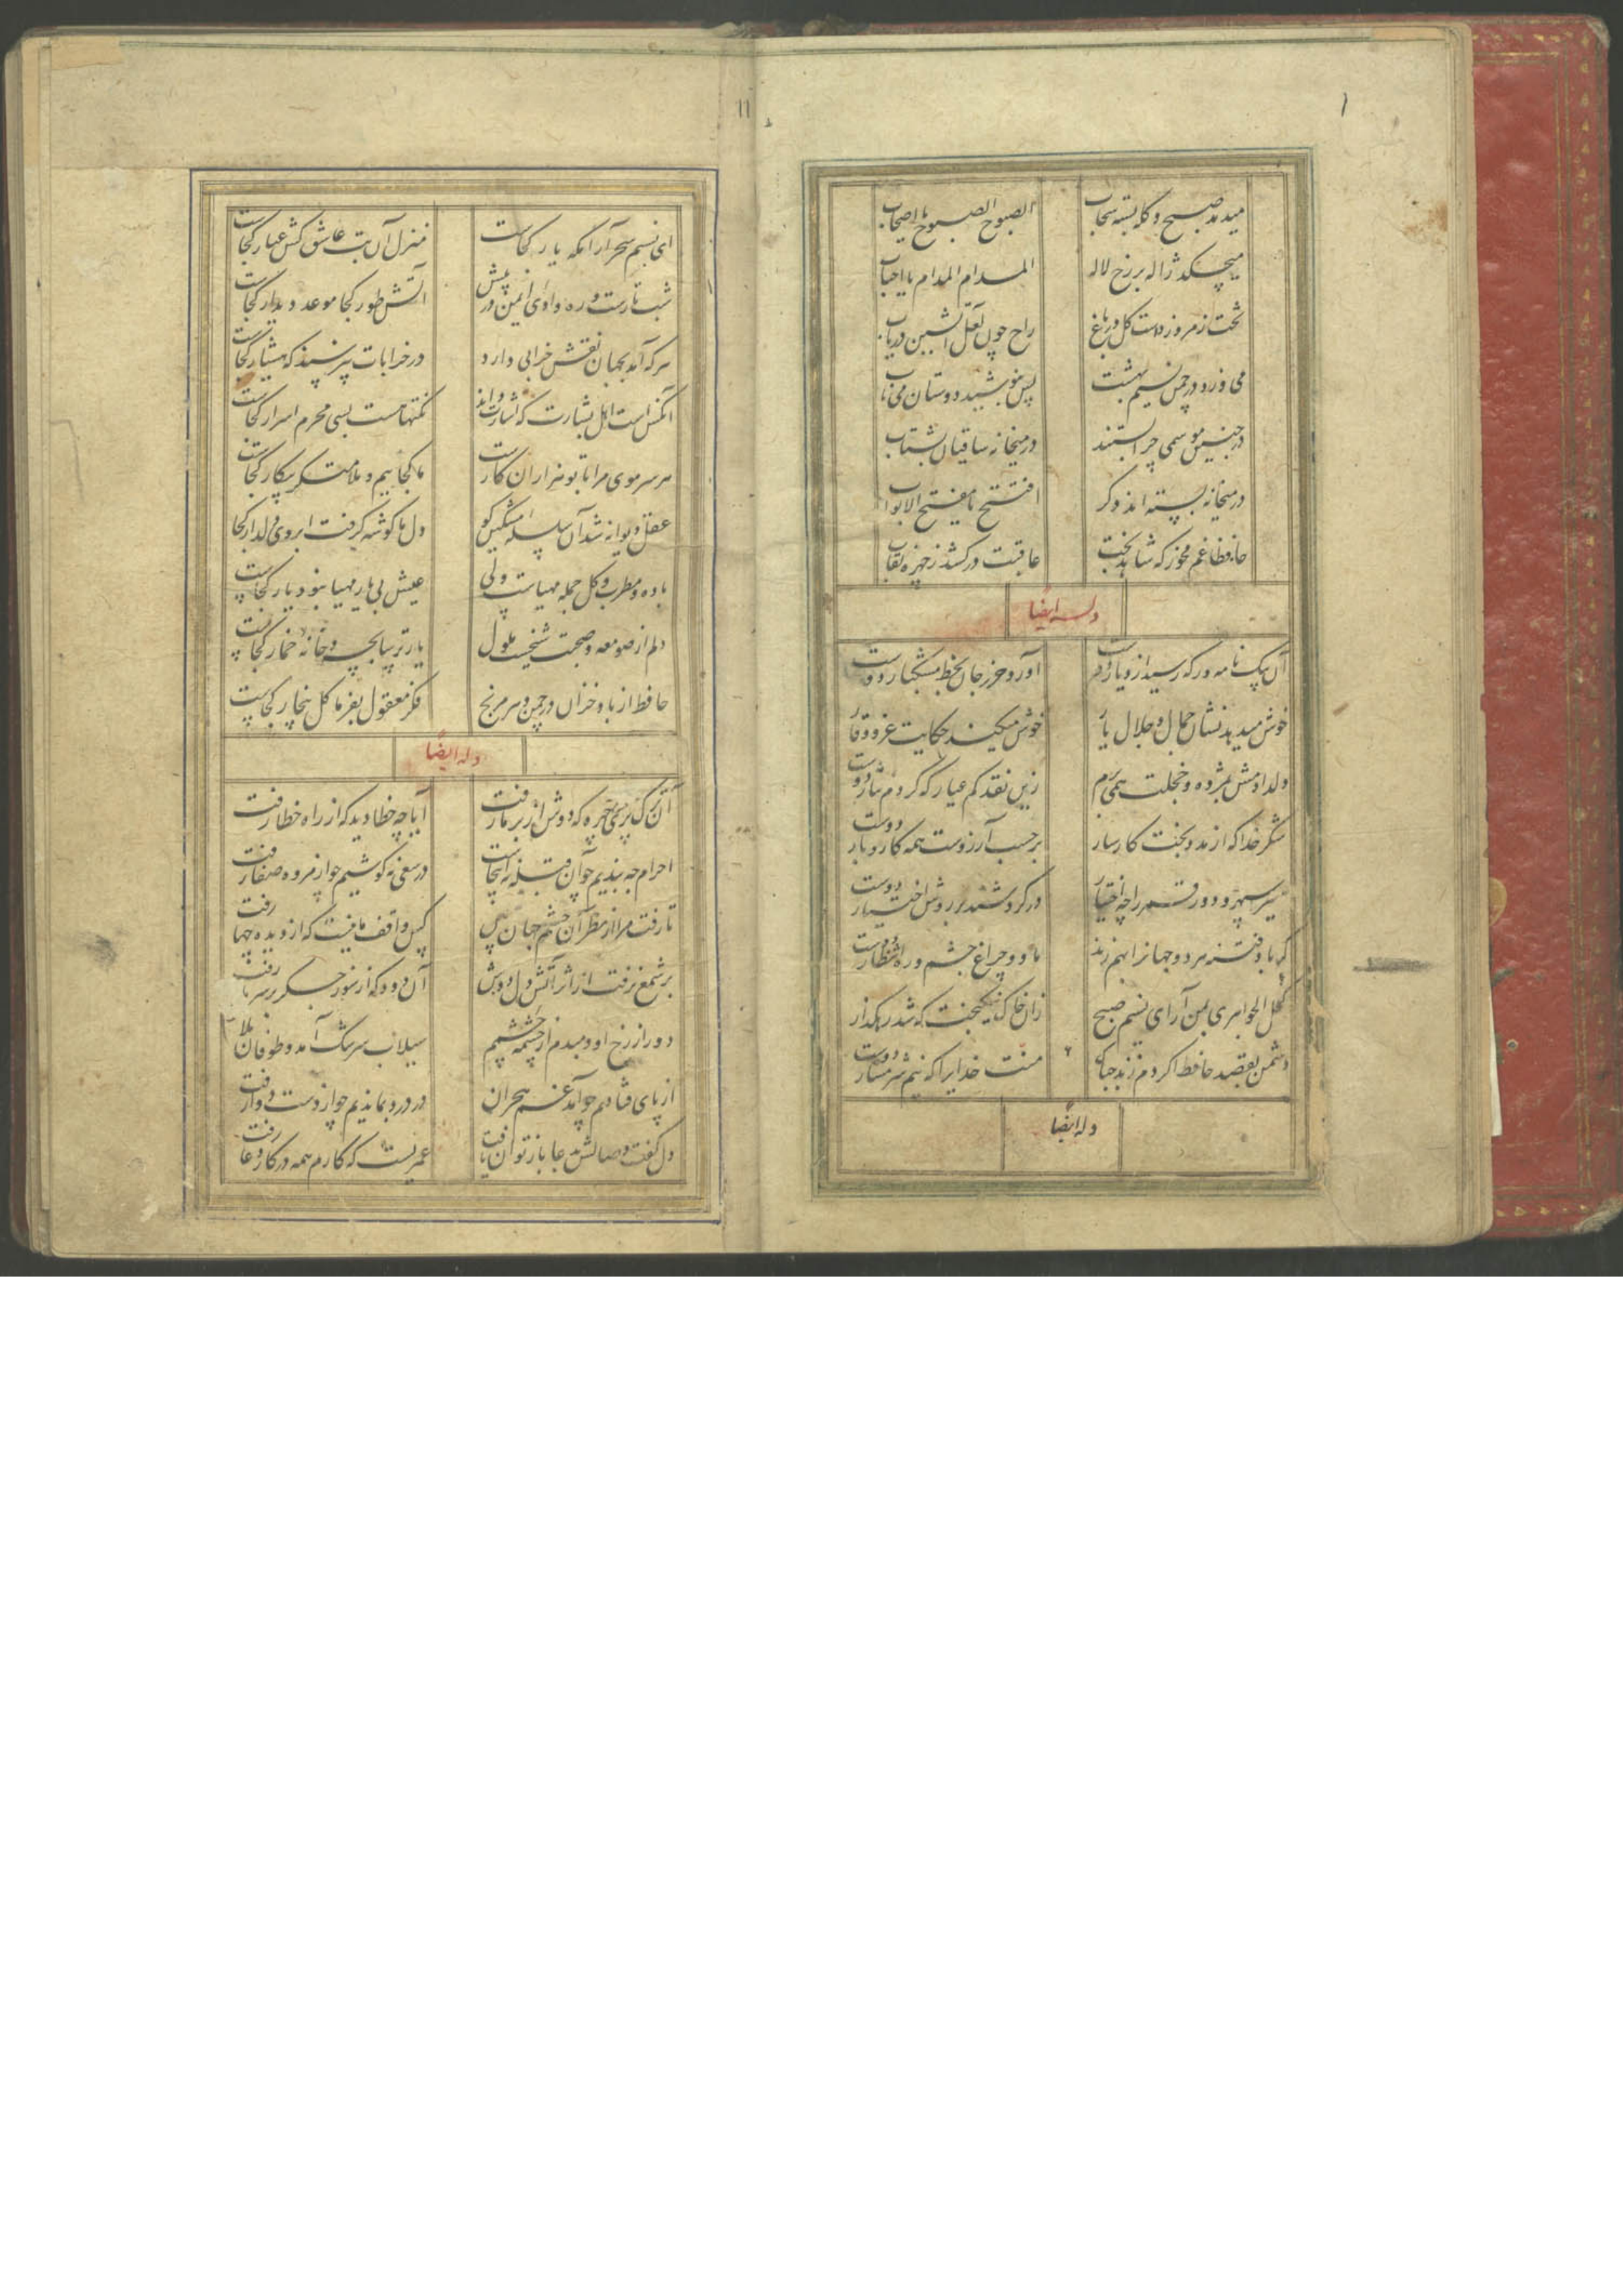 میدمد صبح و کله بسته سحاب الصبوح الصبوح یا اصحاب
میچکد ژاله بر رخ لاله المدام المدام یا احباب
تخت زمرد زدست گل در باغ راح چون لعل آتشین دریاب
می وزد در چمن نسیم بهشت پس بنوشید دوستان می ناب
در چنین موسمی چرا بستند در میخانه ساقیان بشتاب
در میخانه بسته اند دگر افتتح یا مفتح الابواب
حافظا غم مخور که شاهد بخت عاقبت درکشد ز چهره نقاب
وله ایضا
آن پیک نامه ور که رسید از دیار دوست آورد حرز جان بخط مشکبار دوست
خوش میدهد نشان جمال و جلال یار خوش میکند حکایت عز و وقار
دل دادمش بمژده و خجلت همی برم زین نقد کم عیار که کردم نثار دوست
شکر خدا که از مدد بخت کارساز بر حسب آرزوست همه کار و بار دوست
سیر سپهر و دور قمر را چه اختیار در گردشند بر روش اختیار دوست
گر باد فتنه هر دو جهانرا بهم زند ما و چراغ چشم و ره انتظار دوست
کحل الجواهری بمن آر ای نسیم صبح زان خاک نیکبخت که شد رهگذار
دشمن بقصد حافظ اگر دم زند چه باک منت خدایرا که نیم شرمسار دوست
وله ایضا
۱۱
ای نسیم سحر آرامگه یار کجاست منزل آن بت عاشق کش عیار کجاست
شب تارست و ره وادی ایمن در پیش آتش طور کجا موعد دیدار کجاست
هر که آمد بجهان نقش خرابی دارد در خرابات بپرسید که هشیار کجاست
آنکس است اهل بشارت که اشارت داند نکتها هست بسی محرم اسرار کجاست
هر سر موی مرا با تو هزاران کارست ما کجاییم و ملامتگر بیکار کجاست
عقل دیوانه شد آن سلسله مشکین کو دل ما گوشه گرفت ابروی دلدار کجا
باده و مطرب و گل جمله مهیاست ولی عیش بی یار مهیا نبود یار کجاست
دلم از صومعه و صحبت شیخست ملول یار ترسابچه و خانه خمار کجاست
حافظ از باد خزان در چمن دهر مرنج فکر معقول بفرما گل بیخار کجاست
وله ایضا
آن ترک پری چهره که دوش از بر ما رفت آیا چه خطا دید که از راه خطا رفت
احرام چه بندیم چو آن قبله نه اینجاست در سعی نه کوشیم چو از مروه صفا رفت
تا رفت مرا از نظر آن چشم جهان بین کس واقف ما نیست که از دیده چها رفت
بر شمع نرفت از اثر آتش دل دوش آن دود که از سوز جگر بر سر ما رفت
دور از رخ او دمبدم از چشمه چشمم سیلاب سرشک آمد و طوفان بلا
از پای فتادیم چو آمد غم هجران در درد بماندیم چو از دست دوا رفت
دل گفت وصالش بدعا باز توان یافت عمریست که کارم همه در کار دعا رفت